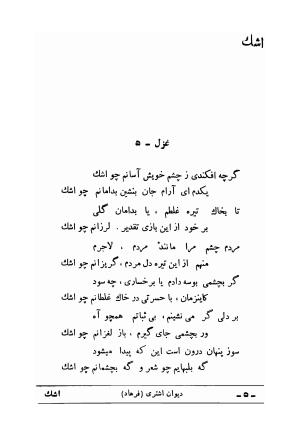 اشك
غزل - ۵
گرچه افکندی ز چشم خویش آسانم چو اشك
یکدم ای آرام جان بنشین بدامانم چو اشك
تا بخاك تیره غلطم ، یا بدامان گلی
بر خود از این بازی تقدیر . لرزانم چو اشك
مردم چشم مرا مانند مردم ، لاجرم
منهم از این تیره دل مردم ، گریزانم چو اشك
گر بچشمی بوسه دادم یا برخساری ، چه سود
کاینزمان ، با حسرتی در خاك غلطانم چو اشك
بر دلی گر می نشینم ، بی ثباتم همچو آه
ور بچشمی جای گیرم ، باز لغزانم چو اشك
سوز پنهان درون است این که پیدا میشود
گه بلبهایم چو شعر و گه بچشمانم چو اشك
- ۵ - دیوان اشتری (فرهاد) اشك